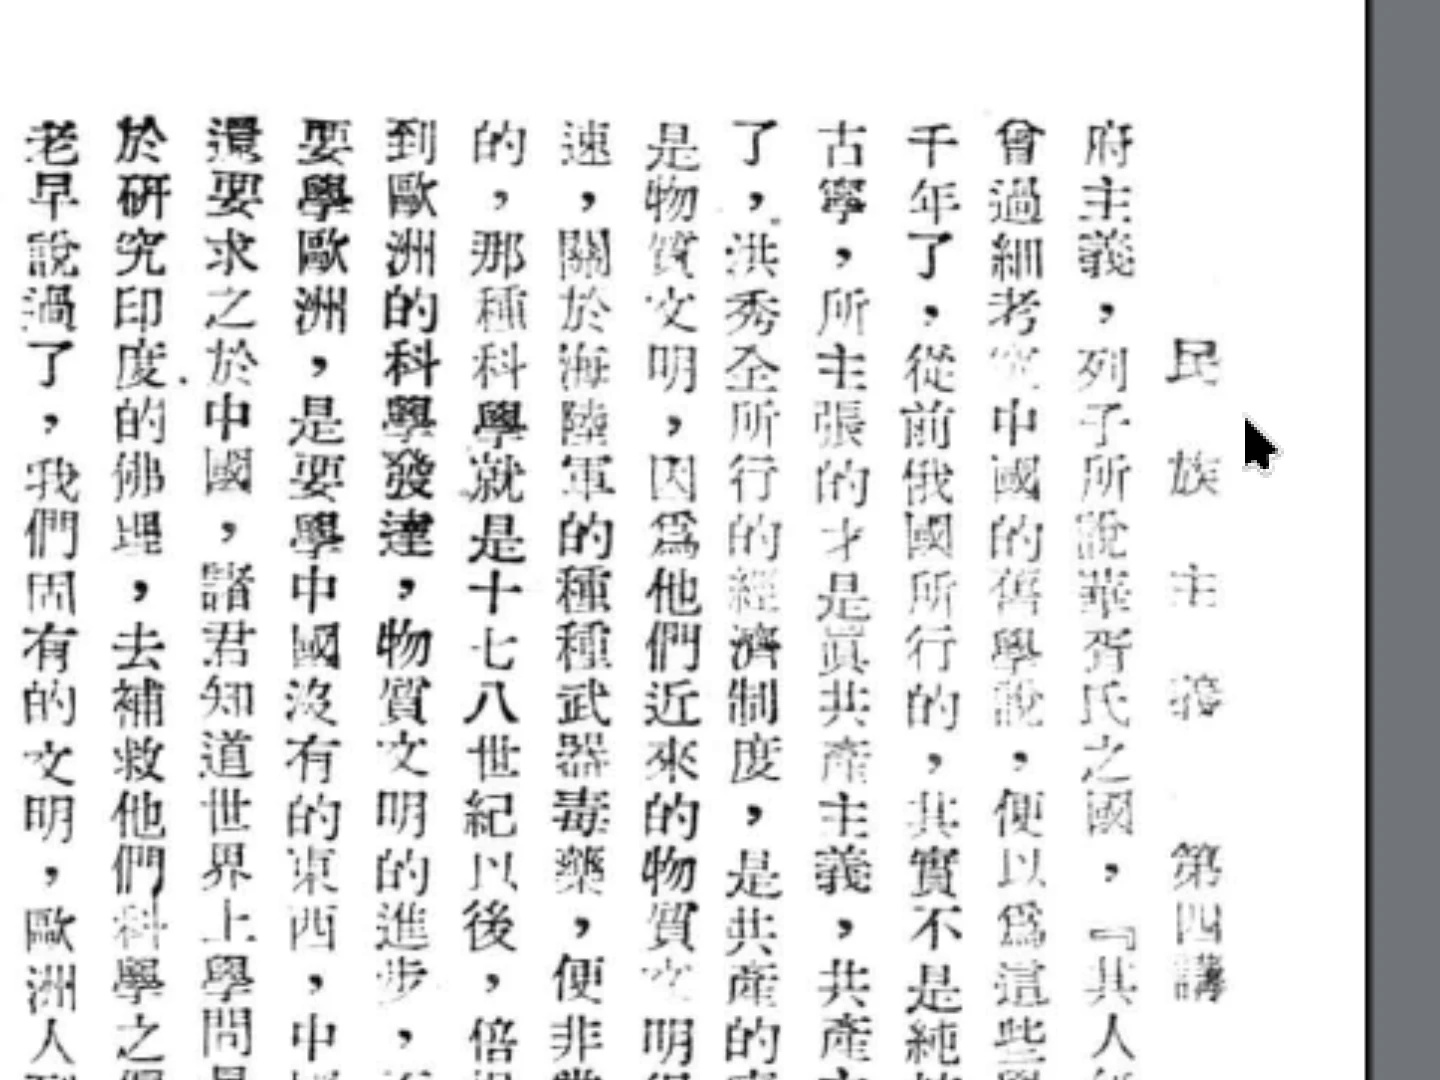 民族主義 第四講
府主義，列子所說華胥氏之國，『其人
曾過細考究中國的舊學說，便以爲這些
千年了，從前俄國所行的，其實不是純
古寧，所主張的才是眞共產主義，共產
了，洪秀全所行的經濟制度，是共產的
是物質文明，因爲他們近來的物質文明
速，關於海陸軍的種種武器毒藥，便非
的，那種科學就是十七八世紀以後，倍
到歐洲的科學發達，物質文明的進步，
要學歐洲，是要學中國沒有的東西，中
還要求之於中國，諸君知道世界上學問
於研究印度的佛理，去補救他們科學之
老早說過了，我們固有的文明，歐洲人